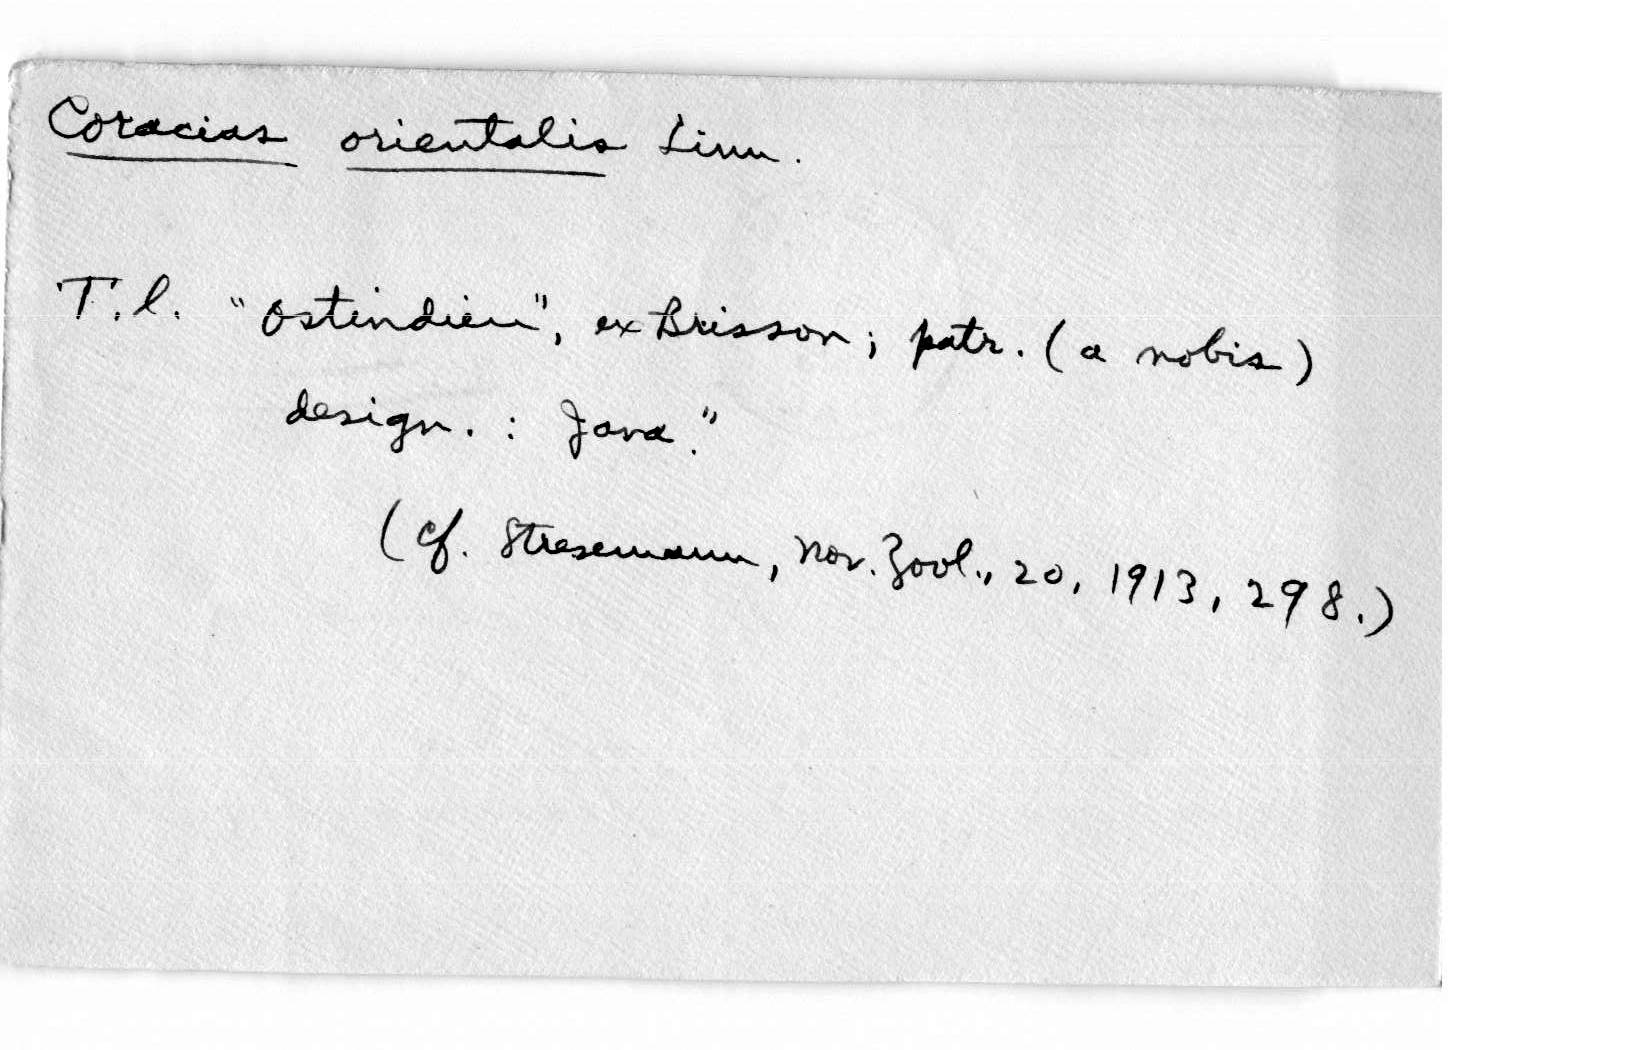 Coracias orientalis Linn.
T.l. "Ostindien", ex Brisson; patr. (a nobis)
design. : Java."
(Cf. Stresemann, Nov. Zool., 20, 1913, 298.)